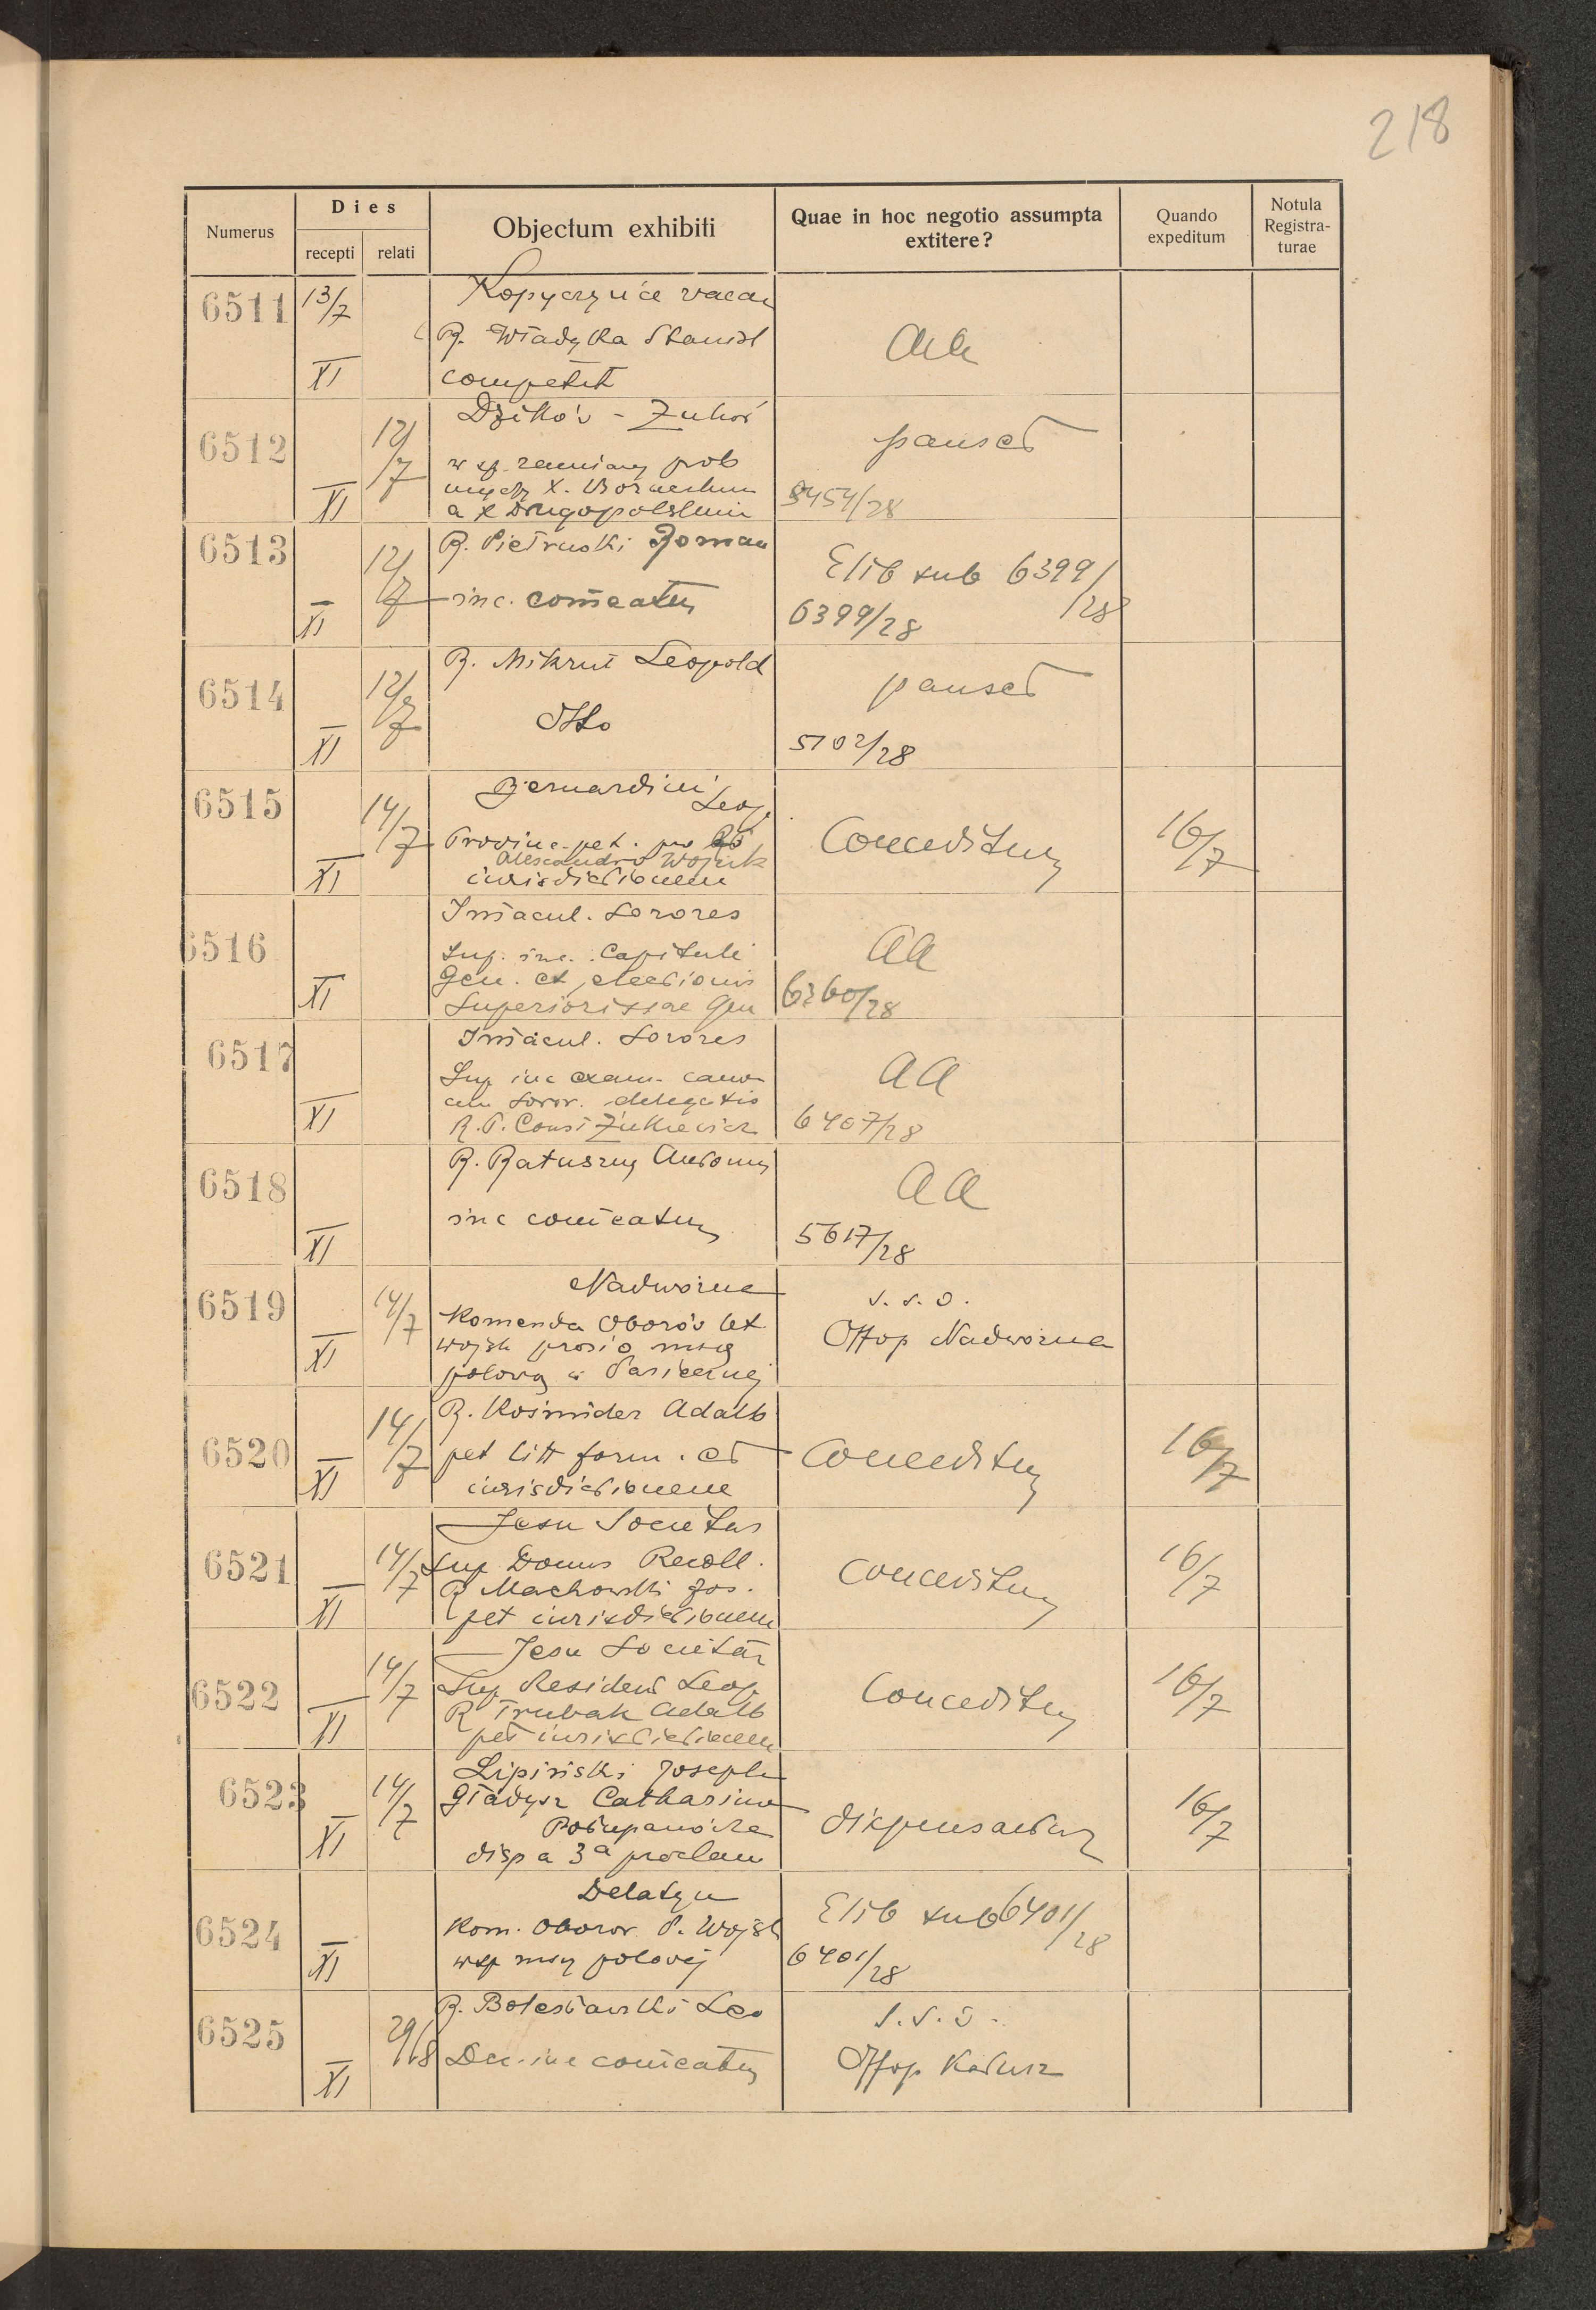 218
Numerus
Dies
recepti relati
Objectum exhibiti
Quae in hoc negotio assumpta
extitere?
Quando
expeditum
Notula
Registra-
turae
6511 13/7
XI
Kopyczyńce vacan
R. Władyka Stanisl
competit
6512 12/7
XI
Dzików - Żuków
w sp. zamiany prob
a X Długopolskim
pauset
5454/28
6513 12/7
XI
R. Pietruski Roman
inc. com̄eatus
Elib sub 6399/28
6399/28
6514 12/7
XI
R. Mikrut Leopold
Otto
pauset
5102/28
6515 14/7
XI
Bernardini Leop.
Provinc. pet. pro
Alescandro Wojcik
iurisdictionem
Conceditur
16/7
6516
XI
Im̄acul. Sorores
Sup. inc. Capituli
Gen. et electionis
Superiorissae Gen
aa
6260/28
6517
XI
Im̄acul. Sorores
Sup inc exam. cano
cum soror. delegatio
R. P. Consi Żukiewicz
aa
6407/28
6518
XI
R. Ratuszny Antoni
inc com̄eatus
aa
5617/28
6519 14/7
XI
Nadwórna
Komenda Obozów let
wojsk prosi o mszę
polową w Pasiecznej
s. s. o.
Offop Nadwórna
6520 14/7
XI
R. Kośmider Adalb
pet litt form. et
iurisdictionem
Conceditur
16/7
6521 14/7
XI
Jesu Societas
Sup Domus Recoll.
R Machowski Jos.
pet iurisdictionem
Conceditur
16/7
6522 14/7
XI
Jesu Societas
Sup Resident Leop
R Trubak Adalb
pet iurisdictionem
Conceditur
16/7
6523 14/7
XI
Lipiński Joseph
Gładysz Catharina
disp a 3ª proclam
dispensantur
16/7
6524
XI
Delatyn
Kom. Obozow P. Wojsk
wsp mszy polowej
Elib sub 6401/28
6401/28
6525 29/18
XI
R. Bolesławski Leo
Dec. inc com̄eatus
s. s. o.
Offop Kałusz